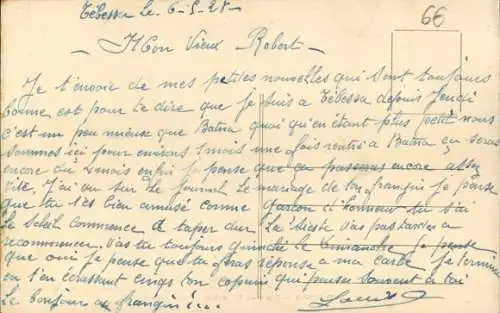 Tébessa Le 6-5-28-
6€
- Mon Vieux Robert -
Je t'envoie de mes petites nouvelles qui sont toujours
bonne est pour te dire que je suis a Tébessa depuis Jeudi
c'est un peu mieux que Batna quoi qu'en étant plus petit nous
sommes ici pour environs 1 mois une fois rentré a Batna ça seras
encore du mois enfin je pense que ça passeras encore assez
vite, J'ai vu sur le journal le mariage de ton frangin je pense
que tu t'es bien amusé comme garçon d'honneur tu sai
Le Soleil commence a taper dur La Sieste vas pas tarder a
recommencer. Vas tu toujours le Dimanche je pense
que oui je pense que tu feras réponse a ma carte je termine
en t'en écrassant cinq ton copain qui pense souvent a toi
Le bonjour au frangin
Louis